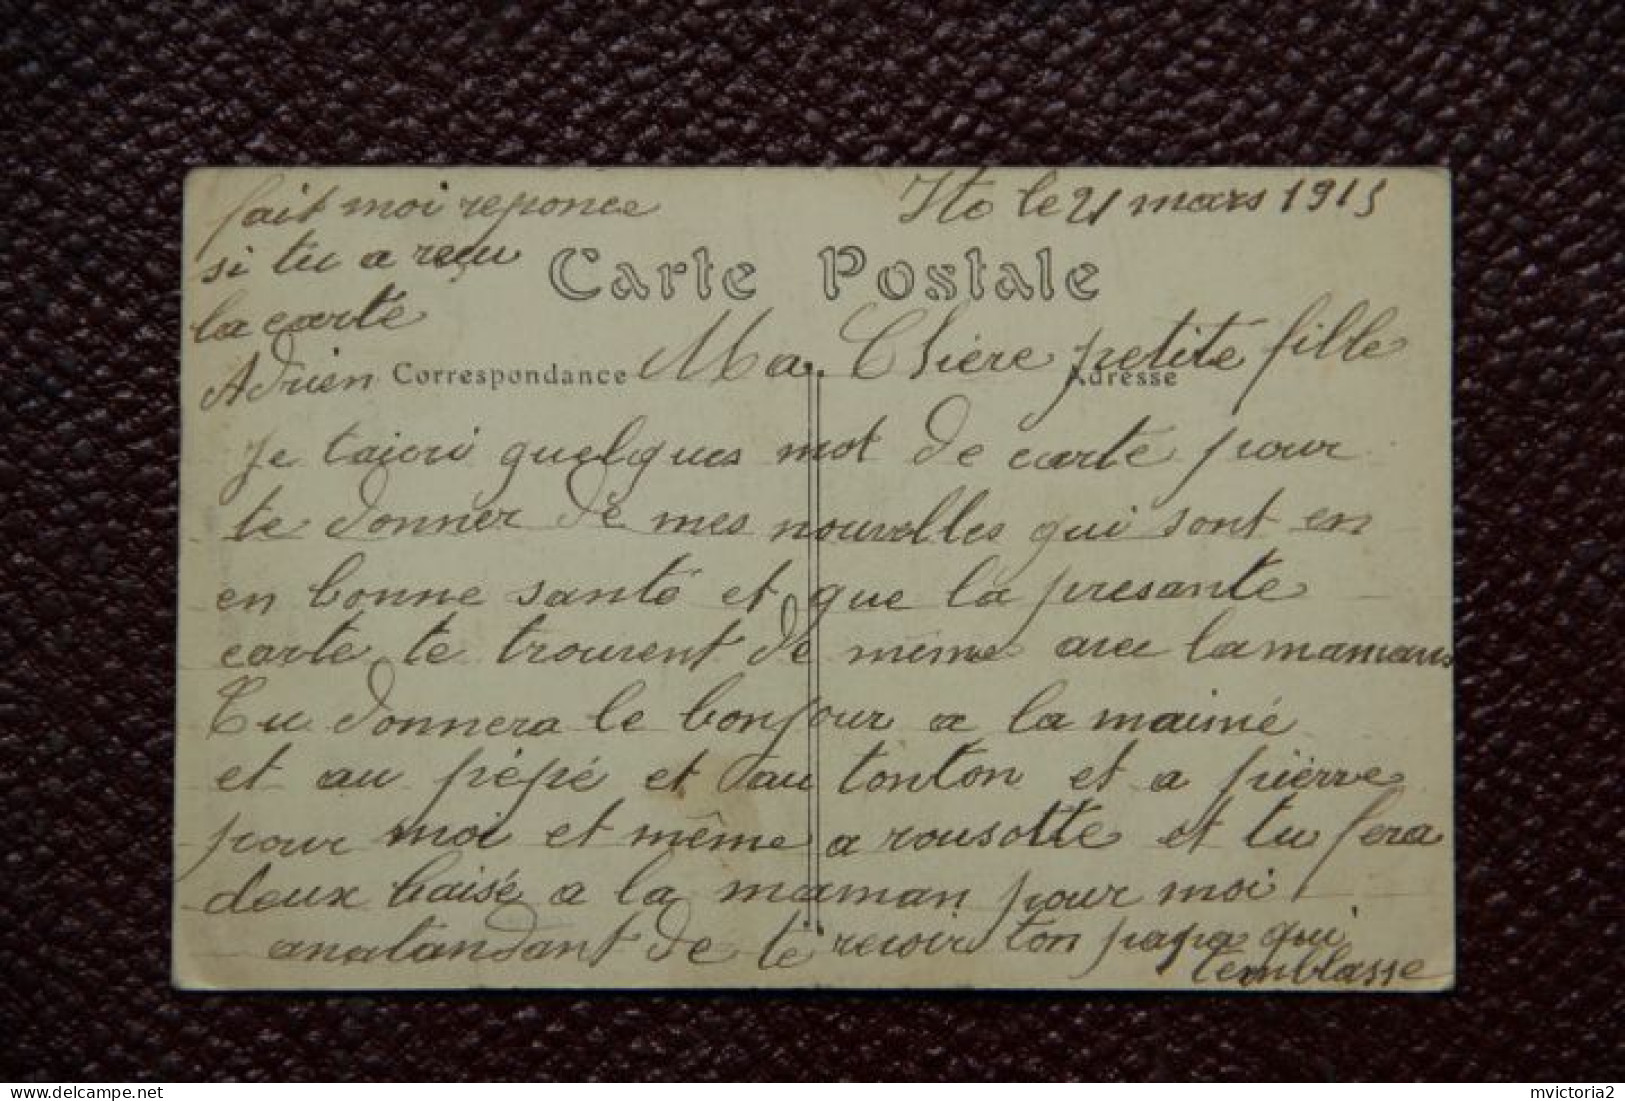 fait moi reponce
si tu a reçu
la carte
Adrien
Ito le 21 mars 1915
Carte Postale
Correspondance
Adresse
Ma Chière petite fille
Je taicri quelques mot de carte pour
te donner de mes nouvelles qui sont en
en bonne santé et que la presante
carte te trouvent de même avec la mamans
Tu donnera le bonjour a la maimé
et au pépé et au tonton et a pièrre
pour moi et même a rousotte et tu fera
deux baisé a la maman pour moi
anatandant de te revoir ton papa qui
temblasse
mvictoria2